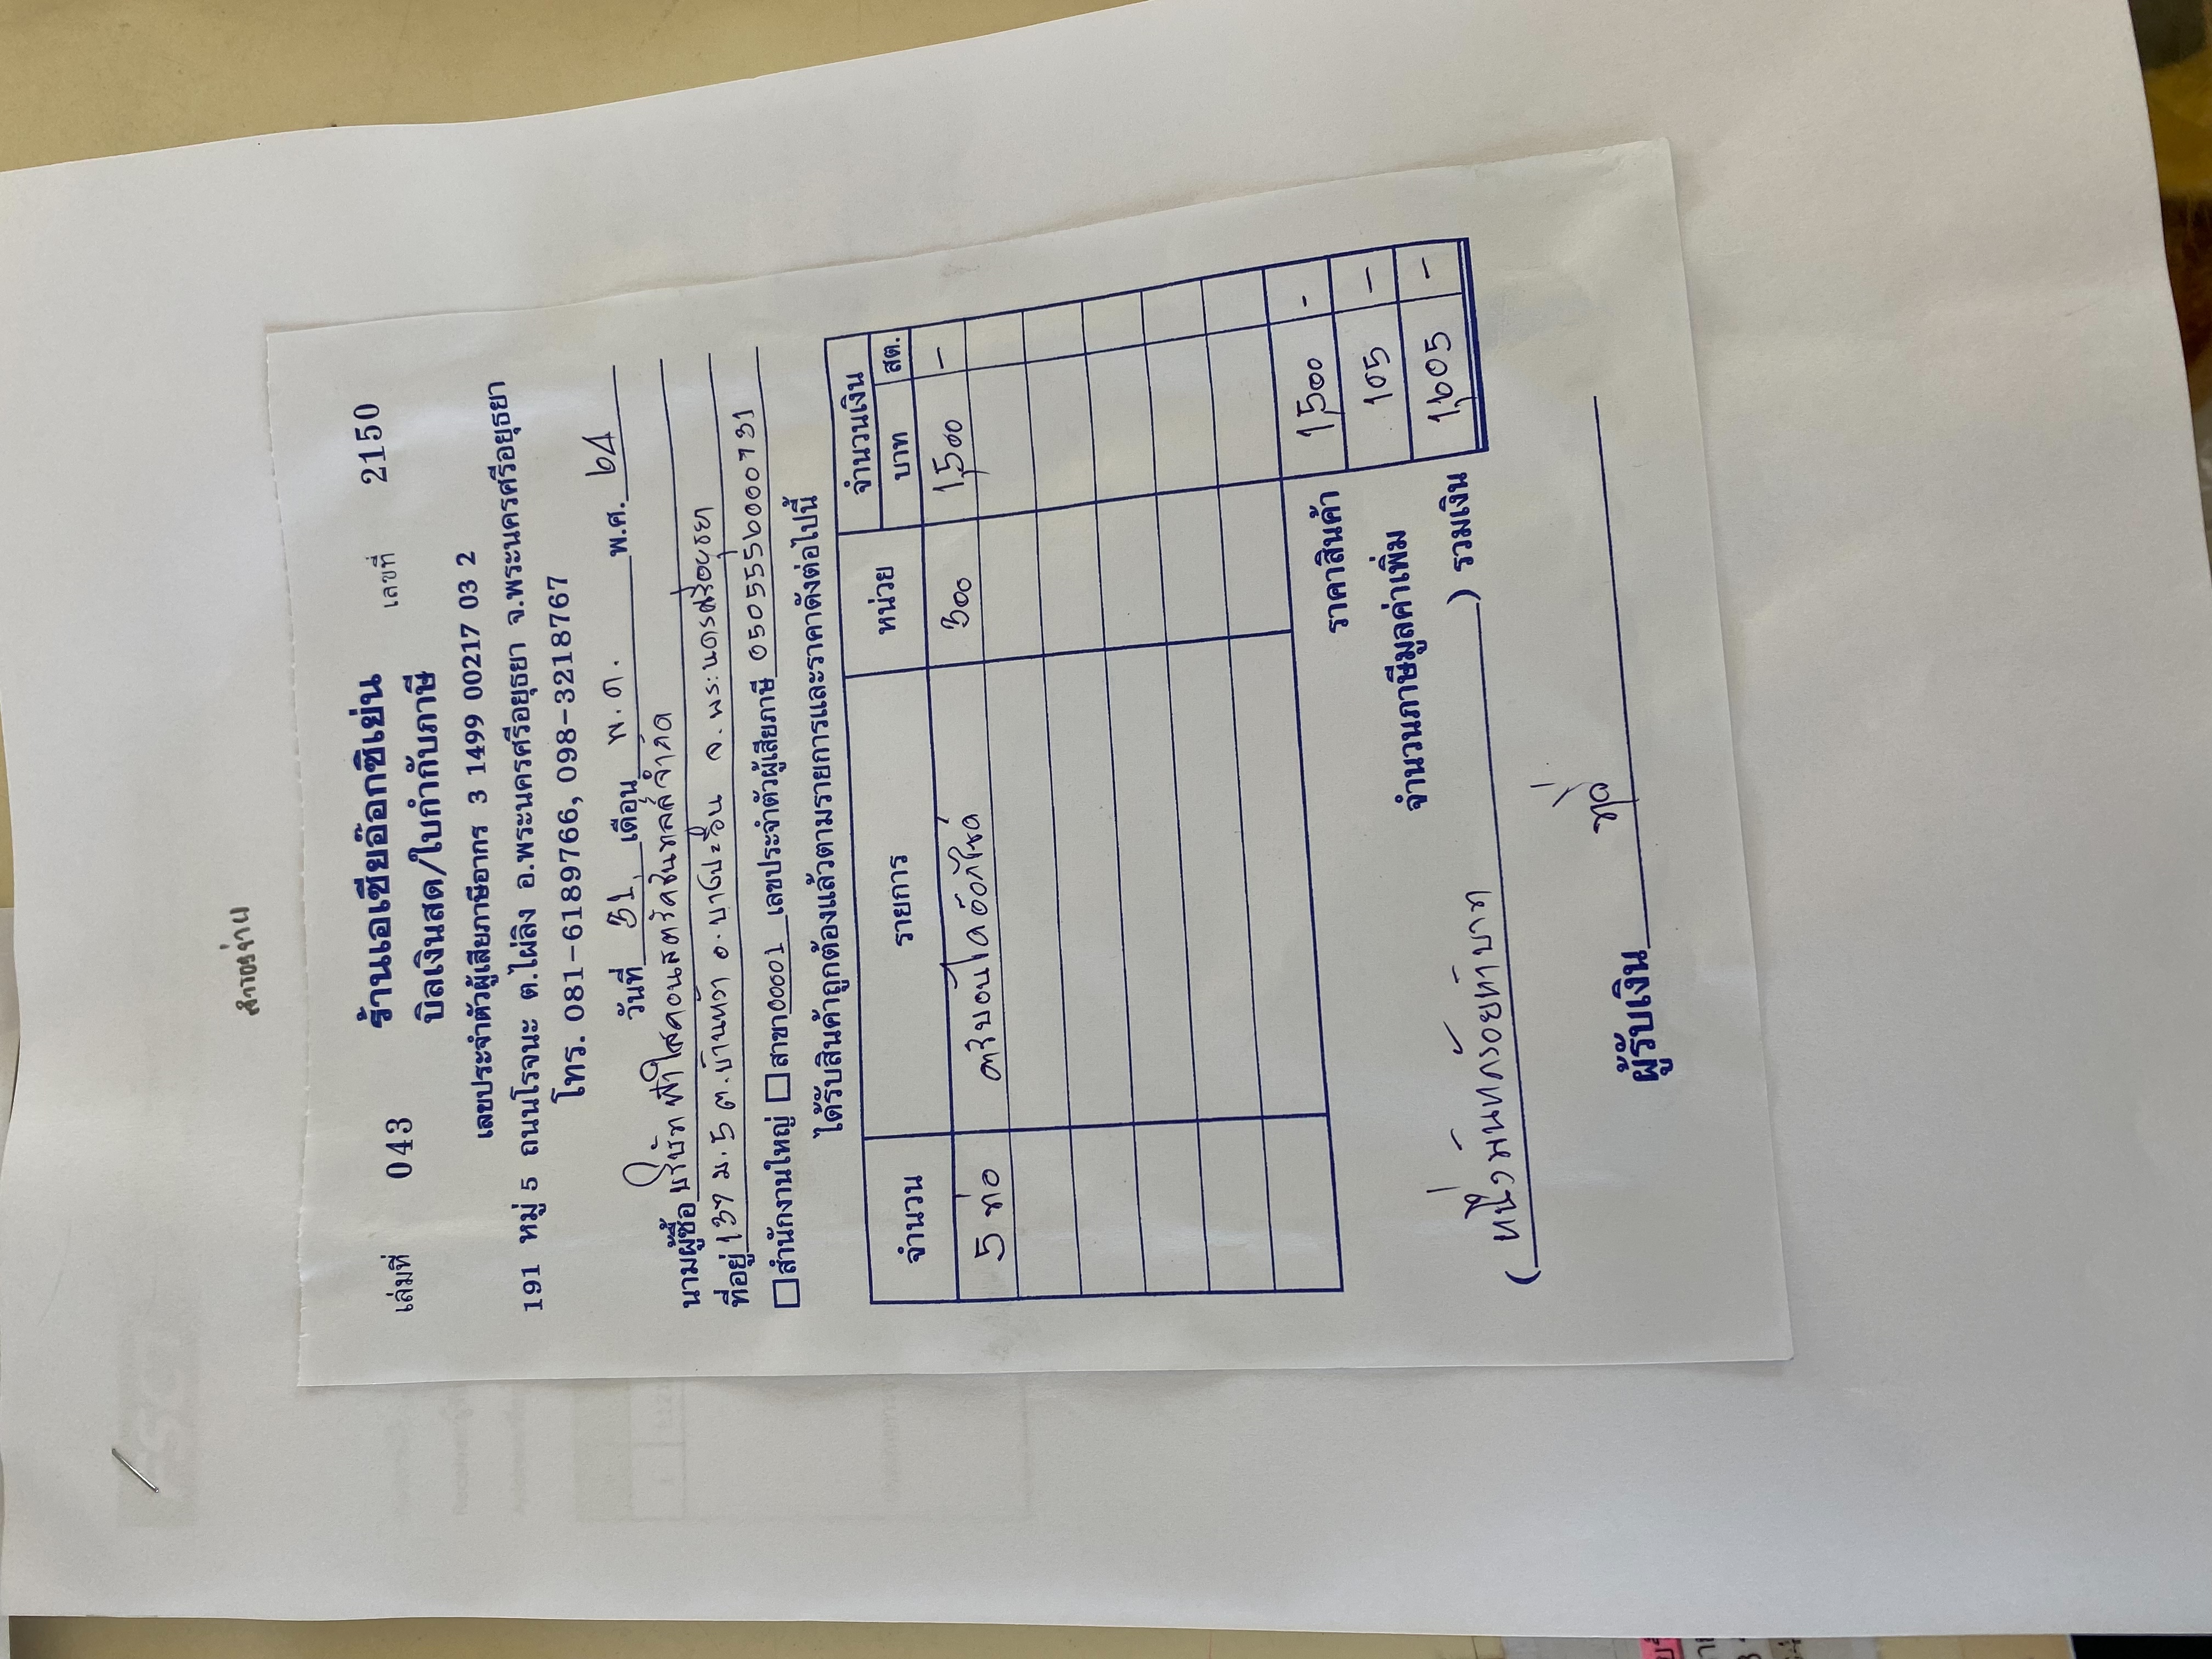 สำรองจ่าย
เล่มที่ 043 ร้านเอเซียอ๊อกซิเย่น เลขที่ 2150
บิลเงินสด/ใบกำกับภาษี
เลขประจำตัวผู้เสียภาษีอากร 3 1499 00217 03 2
191 หมู่ 5 ถนนโรจนะ ต.ไผ่ลิง อ.พระนครศรีอยุธยา จ.พระนครศรีอยุธยา
โทร. 081-6189766, 098-3218767
วันที่ 31 เดือน พ.ค. พ.ศ. 64
นามผู้ซื้อ บริษัท ฟ้าใสคอนสตรัคชั่นทูลส์ จำกัด
ที่อยู่ 137 ม.5 ต.บ้านหว้า อ.บางปะอิน จ.พระนครศรีอยุธยา
สำนักงานใหญ่ สาขา 00001 เลขประจำตัวผู้เสียภาษี 0505556000731
ได้รับสินค้าถูกต้องแล้วตามรายการและราคาดังต่อไปนี้
จำนวน รายการ หน่วย จำนวนเงิน
บาท สต.
5 ท่อ คาร์บอนไดอ๊อกไซด์ 300 1,500 -
ราคาสินค้า 1,500 -
จำนวนภาษีมูลค่าเพิ่ม 105 -
( หนึ่งพันหกร้อยห้าบาท ) รวมเงิน 1,605 -
ผู้รับเงิน